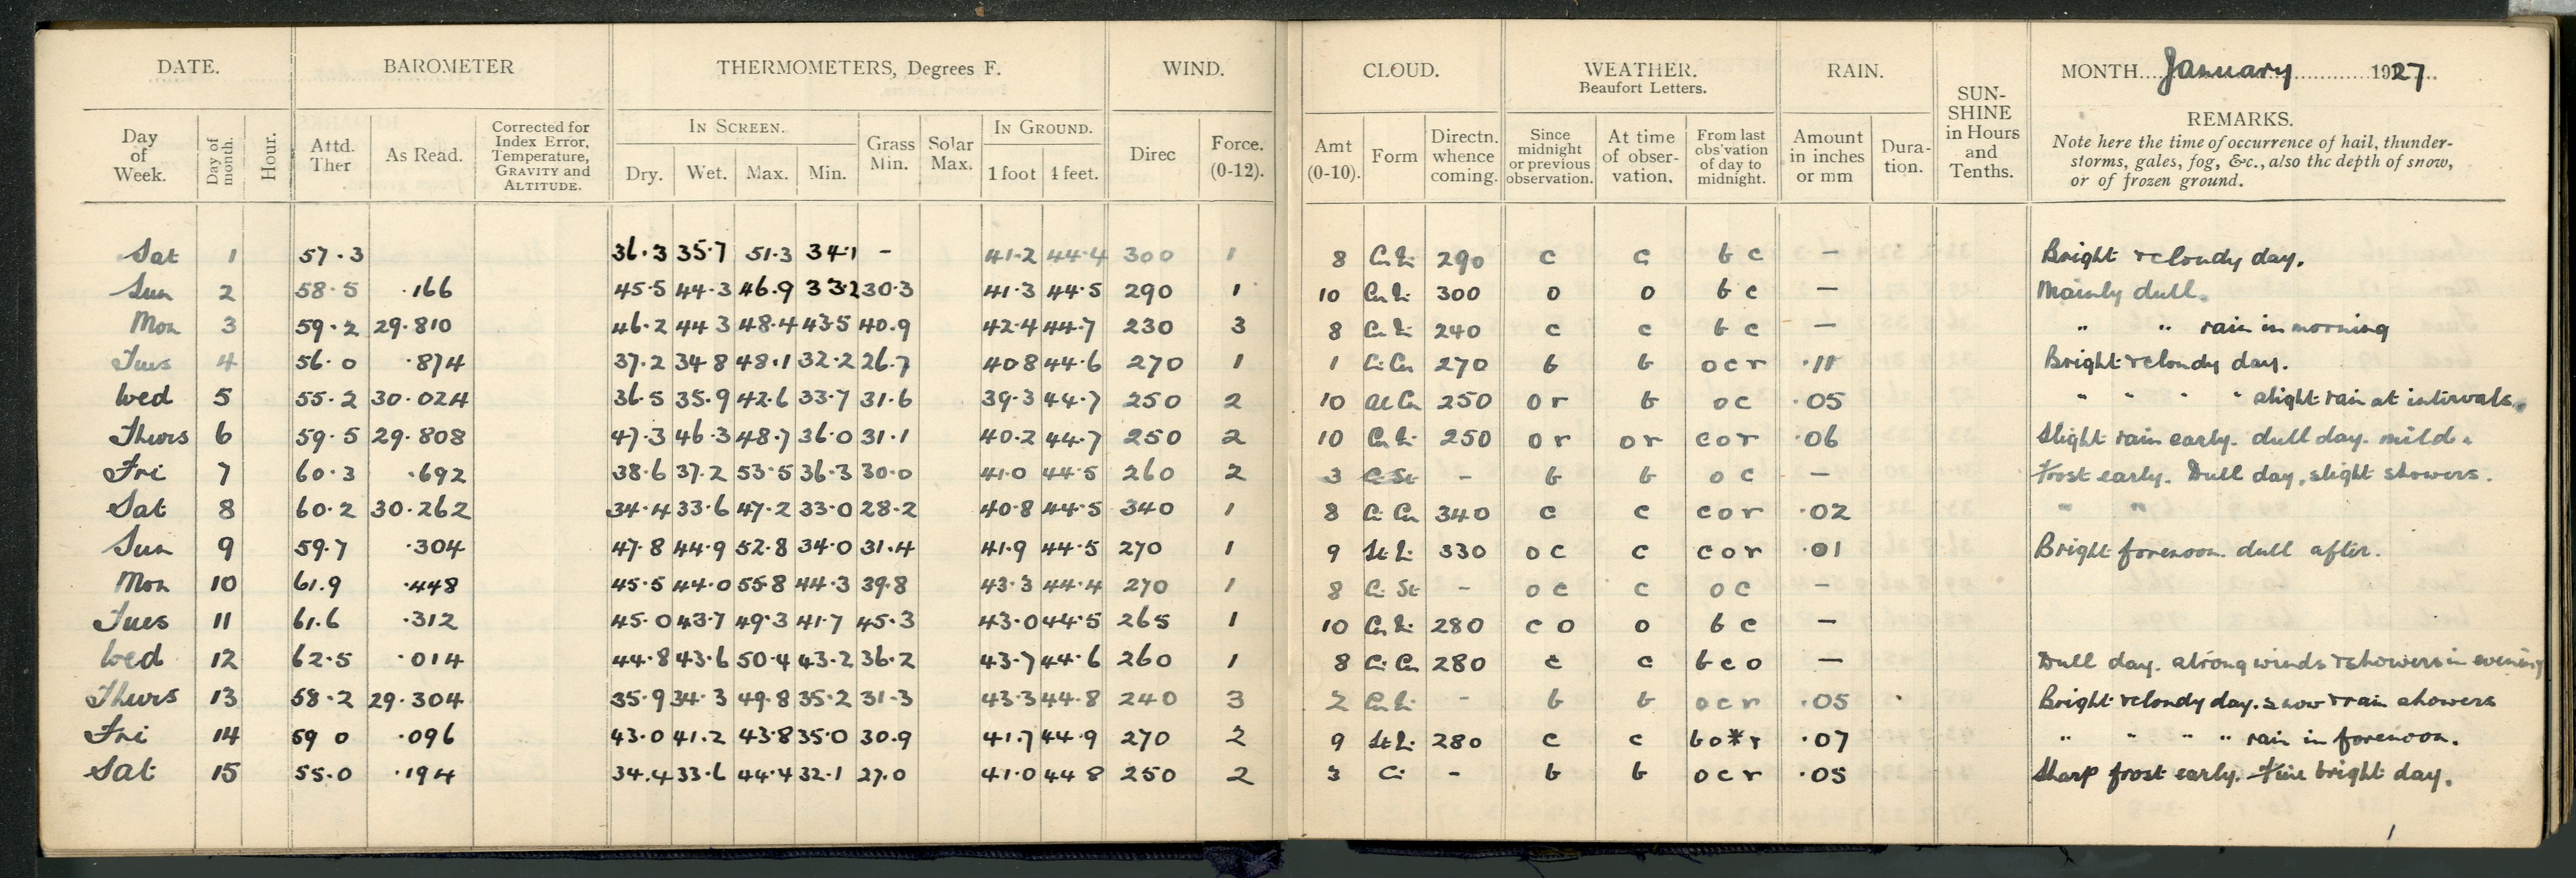 DATE. BAROMETER THERMOMETERS, Degrees F. WIND. CLOUD. WEATHER. Beaufort Letters. RAIN. SUN-SHINE in Hours and Tenths. MONTH January 1927
REMARKS.
Note here the time of occurrence of hail, thunder-
storms, gales, fog, &c., also the depth of snow,
or of frozen ground.
Day of Week. Day of month. Hour. Attd. Ther As Read. Corrected for Index Error, Temperature, GRAVITY and ALTITUDE. IN SCREEN. Dry. Wet. Max. Min. Grass Min. Solar Max. IN GROUND. 1 foot 4 feet. Direc Force. (0-12). Amt (0-10). Form Directn. whence coming. Since midnight or previous observation. At time of obser-vation. From last obs'vation of day to midnight. Amount in inches or mm Dura-tion.
Sat 1 57.3 36.3 35.7 51.3 34.1 - 41.2 44.4 300 1 8 290 c c b c - Bright & cloudy day.
Sun 2 58.5 .166 45.5 44.3 46.9 33.2 30.3 41.3 44.5 290 1 10 300 o o b c - Mainly dull.
Mon 3 59.2 29.810 46.2 44 3 48.4 43.5 40.9 42.4 44.7 230 3 8 240 c c b c - " " rain in morning
Tues 4 56.0 .874 37.2 34 8 48.1 32.2 26.7 40 8 44.6 270 1 1 Ci Cu 270 b b o c r .11 Bright & cloudy day.
Wed 5 55.2 30.024 36.5 35.9 42.6 33.7 31.6 39.3 44.7 250 2 10 250 o r b o c .05 " " " " slight rain at intervals.
Thurs 6 59.5 29.808 47.3 46.3 48.7 36.0 31.1 40.2 44.7 250 2 10 250 o r o r c o r .06 Slight rain early. dull day. mild.
Fri 7 60.3 .692 38.6 37.2 53.5 36.3 30.0 41.0 44.5 260 2 3 - b b o c - Frost early. Dull day, slight showers.
Sat 8 60.2 30.262 34.4 33.6 47.2 33.0 28.2 40.8 44.5 340 1 8 Ci Cu 340 c c c o r .02 " "
Sun 9 59.7 .304 47.8 44.9 52.8 34.0 31.4 41.9 44.5 270 1 9 330 o c c c o r .01 Bright forenoon. dull after.
Mon 10 61.9 .448 45.5 44.0 55.8 44.3 39.8 43.3 44.4 270 1 8 Ci St - o c c o c -
Tues 11 61.6 .312 45.0 43.7 49.3 41.7 45.3 43.0 44.5 265 1 10 280 c o o b c -
Wed 12 62.5 .014 44.8 43.6 50.4 43.2 36.2 43.7 44.6 260 1 8 Ci Cu 280 c c b c o - Dull day. strong winds & showers in evening
Thurs 13 58.2 29.304 35.9 34.3 49.8 35.2 31.3 43.3 44.8 240 3 2 - b b o c r .05 Bright & cloudy day. snow & rain showers
Fri 14 59 0 .096 43.0 41.2 43.8 35.0 30.9 41.7 44.9 270 2 9 280 c c b o * r .07 " " " " rain in forenoon.
Sat 15 55.0 .194 34.4 33.6 44.4 32.1 27.0 41.0 44 8 250 2 3 Ci - b b o c r .05 Sharp frost early. Fine bright day.
1